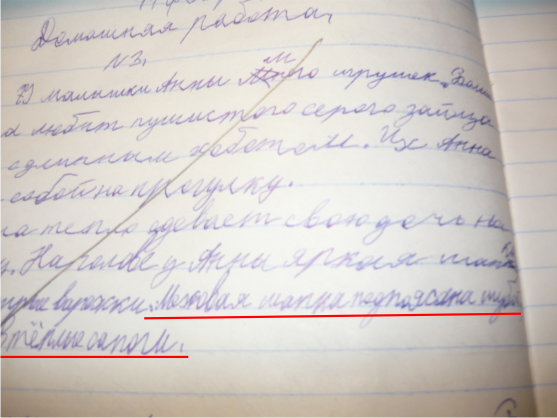 Домашняя работа.
N 3.
У малышки Анны много игрушек. Больш
а любит пушистого серого зайца
с длинным хоботом. Их Анна
с собой на прогулку.
ма тепло одевает свою дочь на
у. На голове у Анны яркая шапка
варежки. Меховая шапка подпоясана
тёплые сапоги.